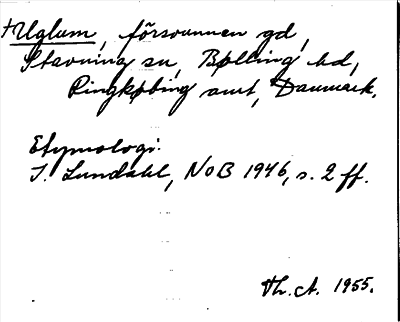 †Uglum, försvunnen gd,
Stavning sn, Bølling hd,
Ringkøbing amt, Danmark.
Etymologi.
I. Lundahl, NoB 1946, s. 2 ff.
Th. A. 1955.